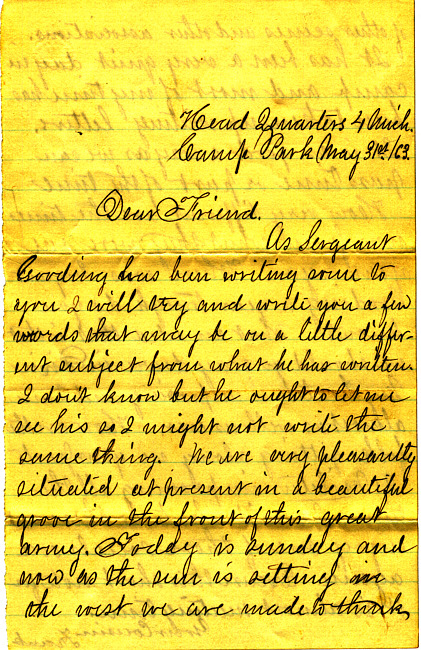 Head Quarters 4 Mich.
Camp Park May 31st/63.
Dear Friend.
As Sergeant
Gooding has been writing some to
you I will try and write you a few
words that may be on a little differ-
ent subject from what he has written.
I don't know but he ought to let me
see his so I might not write the
same thing. We are very pleasantly
situated at present in a beautiful
grove in the front of this great
army. Today is sunday and
now as the sun is setting in
the west we are made to think,